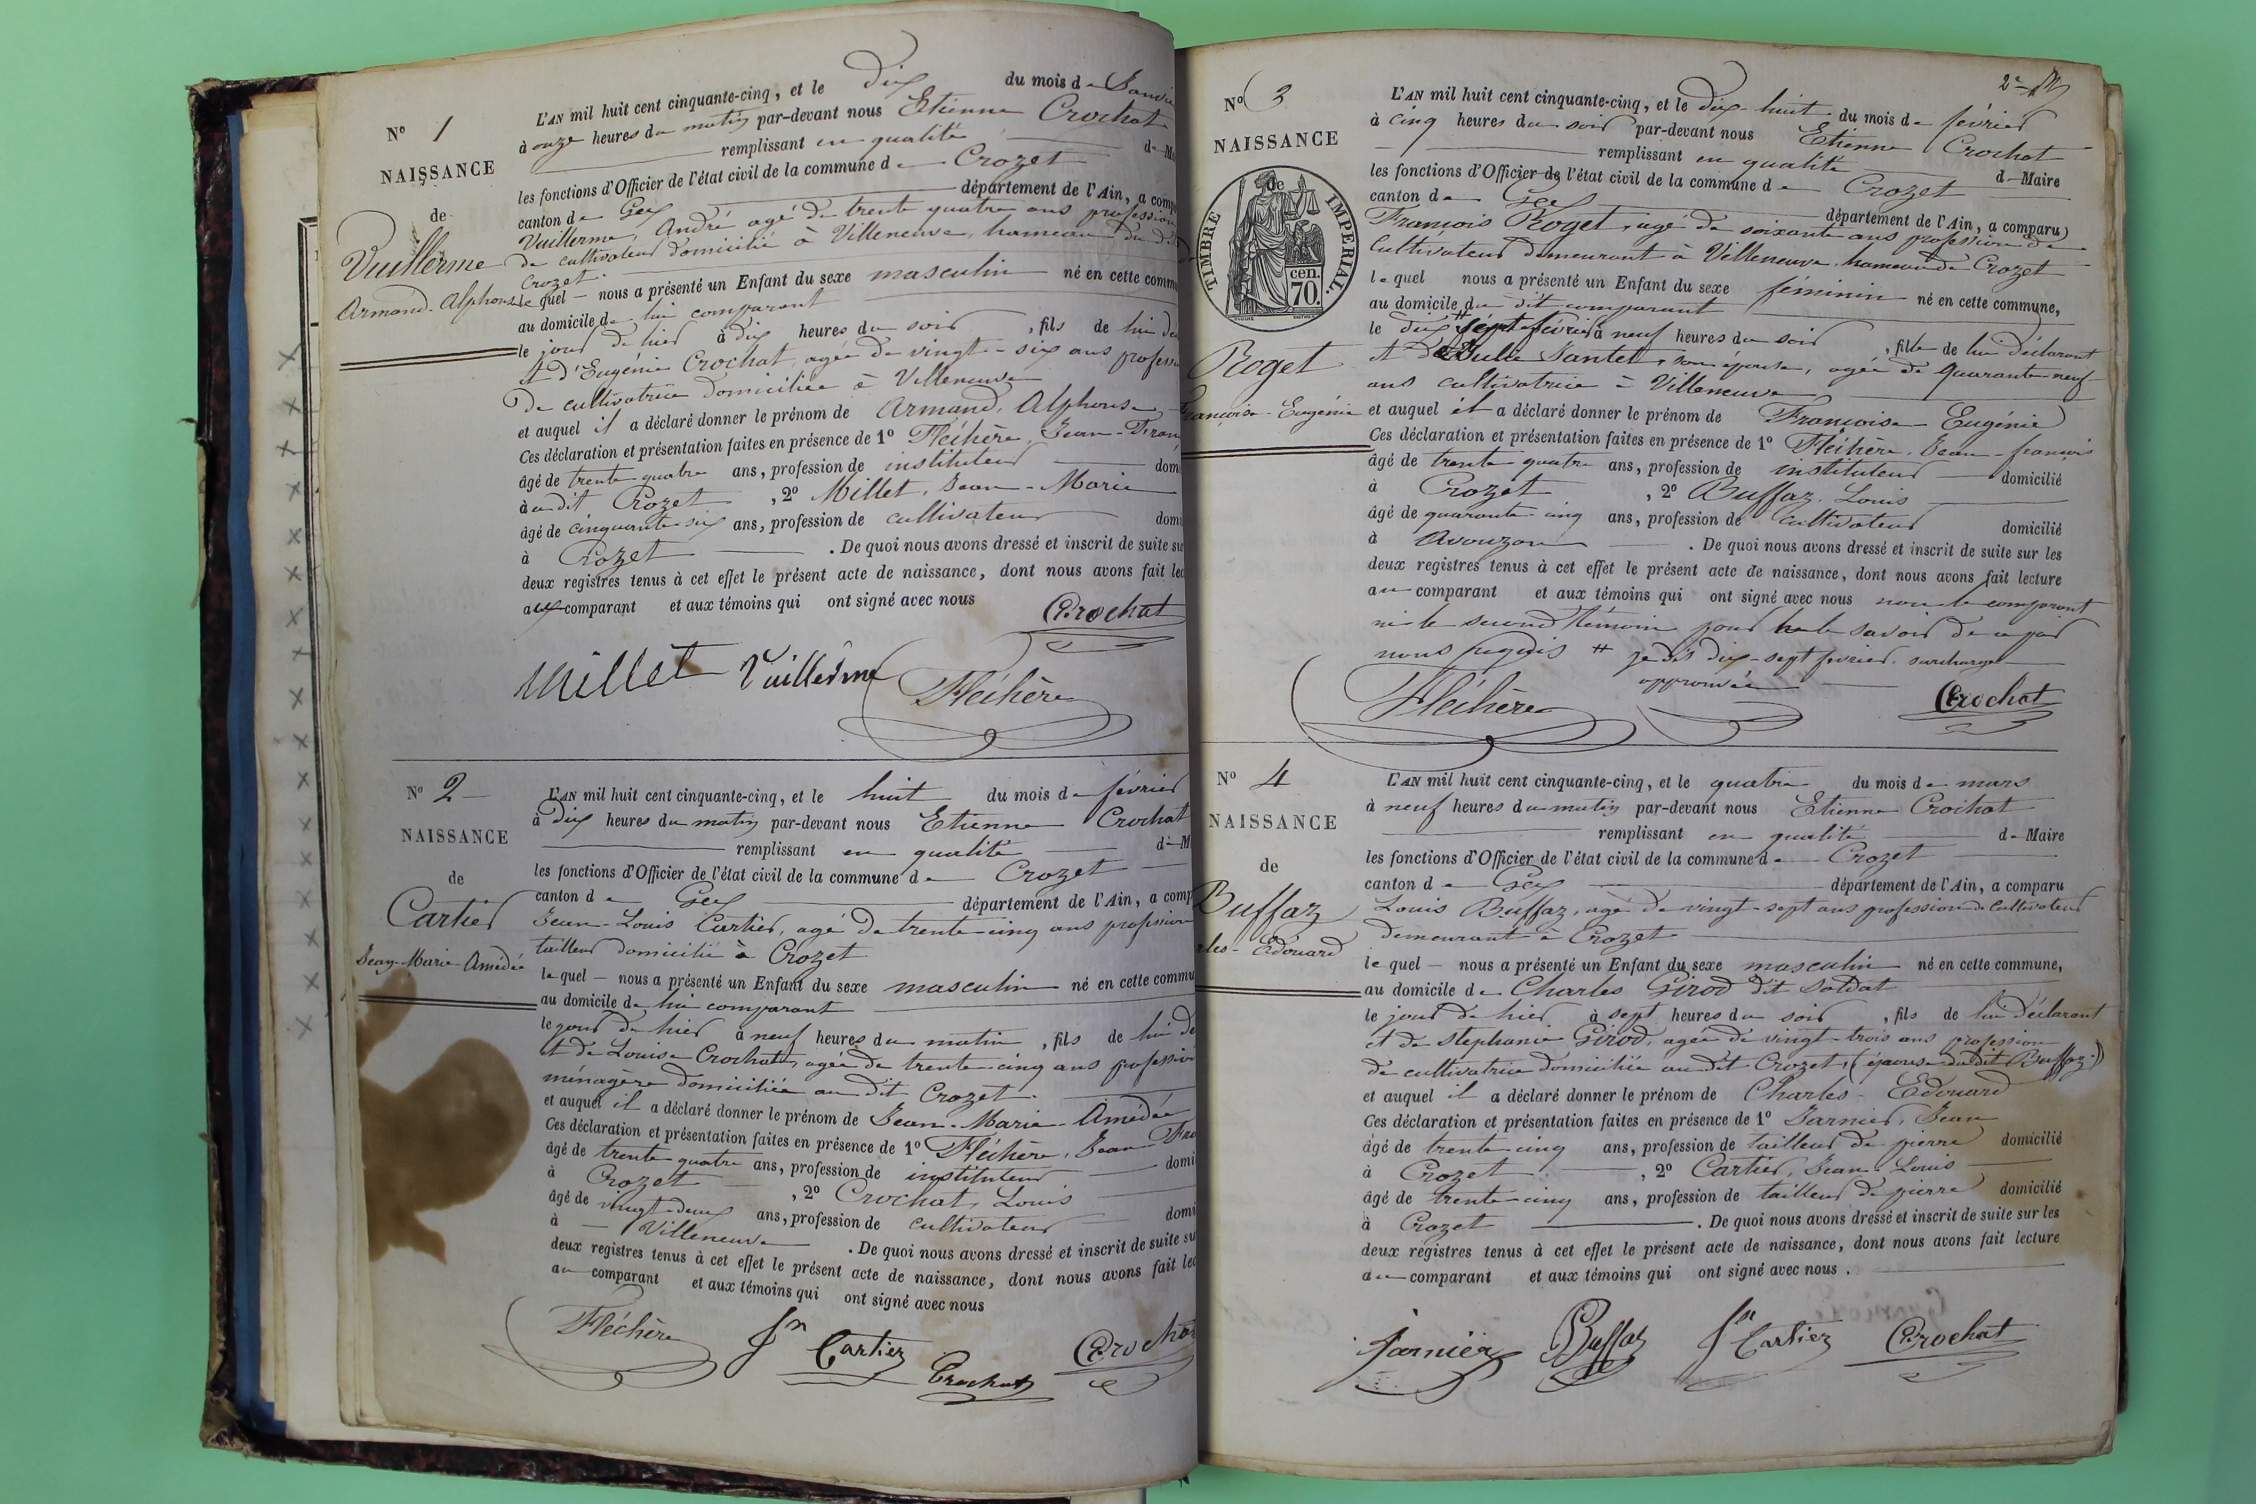 N° 1
NAISSANCE
de
Vuillerme
Armand-Alphonse
L'AN mil huit cent cinquante-cinq, et le dix du mois de Janvie
à onze heures du matin par-devant nous Etienne Crochat
remplissant en qualité de M
les fonctions d'Officier de l'état civil de la commune de Crozet
canton de Gex département de l'Ain, a comp
Vuillerme, André agé de trente quatre ans profession
de cultivateur domicilié à Villeneuve, hameau du dit
Crozet
lequel nous a présenté un Enfant du sexe masculin né en cette commu
au domicile de lui comparant
le jour de hier à dix heures du soir, fils de lui dé
et d'Eugénie Crochat, agée de vingt-six ans professi
de cultivatrice domiciliée à Villeneuve
et auquel il a déclaré donner le prénom de Armand, Alphonse
Ces déclaration et présentation faites en présence de 1° Fléchère, Jean-Fran
âgé de trente-quatre ans, profession de instituteur domi
à dit Crozet, 2° Millet, Jean-Marie
âgé de cinquante-six ans, profession de cultivateur domi
à Crozet. De quoi nous avons dressé et inscrit de suite su
deux registres tenus à cet effet le présent acte de naissance, dont nous avons fait lec
aux comparant et aux témoins qui ont signé avec nous
Crochat
Millet Vuillerme Fléchère
N° 2
NAISSANCE
de
Cartier
Jean-Marie-Amédée
L'AN mil huit cent cinquante-cinq, et le huit du mois de février
à dix heures du matin par-devant nous Etienne Crochat
remplissant en qualité de M
les fonctions d'Officier de l'état civil de la commune de Crozet
canton de Gex département de l'Ain, a comp
Jean-Louis Cartier, agé de trente-cinq ans profession
tailleur domicilié à Crozet
lequel nous a présenté un Enfant du sexe masculin né en cette commu
au domicile de lui comparant
le jour de hier à neuf heures du matin, fils de lui dé
et de Louise Crochat, agée de trente-cinq ans professio
ménagère domiciliée au dit Crozet.
et auquel il a déclaré donner le prénom de Jean-Marie-Amédée
Ces déclaration et présentation faites en présence de 1° Fléchère, Jean-Fra
âgé de trente quatre ans, profession de instituteur domi
à Crozet, 2° Crochat, Louis
âgé de vingt-deux ans, profession de cultivateur domi
à Villeneuve. De quoi nous avons dressé et inscrit de suite su
deux registres tenus à cet effet le présent acte de naissance, dont nous avons fait lec
au comparant et aux témoins qui ont signé avec nous
Fléchère Jn Cartier Crochat Crochat
2e
N° 3
NAISSANCE
de
TIMBRE IMPERIAL.
cen.
70.
Roget
Françoise-Eugénie
L'AN mil huit cent cinquante-cinq, et le dix-huit du mois de février
à cinq heures du soir par-devant nous Etienne Crochat
remplissant en qualité de Maire
les fonctions d'Officier de l'état civil de la commune de Crozet
canton de Gex département de l'Ain, a comparu
François Roget, agé de soixante ans profession de
cultivateur demeurant à Villeneuve hameau de Crozet
lequel nous a présenté un Enfant du sexe féminin né en cette commune,
au domicile du dit comparant
le dix # sept février à neuf heures du soir, fille de lui déclarant
et de Julie Jantet, son épouse, agée de quarante-neuf
ans cultivatrice à Villeneuve
et auquel il a déclaré donner le prénom de Françoise Eugénie
Ces déclaration et présentation faites en présence de 1° Fléchère, Jean-françois
âgé de trente quatre ans, profession de instituteur domicilié
à Crozet, 2° Buffaz, Louis
âgé de quarante-cinq ans, profession de cultivateur domicilié
à Avouzon. De quoi nous avons dressé et inscrit de suite sur les
deux registres tenus à cet effet le présent acte de naissance, dont nous avons fait lecture
au comparant et aux témoins qui ont signé avec nous non le comparant
ni le second témoin pour ne le savoir de ce par
nous requis # je dis dix-sept février. surcharge
approuvée
Fléchère Crochat
N° 4
NAISSANCE
de
Buffaz
rles-Edouard
L'AN mil huit cent cinquante-cinq, et le quatre du mois de mars
à neuf heures du matin par-devant nous Etienne Crochat
remplissant en qualité de Maire
les fonctions d'Officier de l'état civil de la commune de Crozet
canton de Gex département de l'Ain, a comparu
Louis Buffaz, agé de vingt-sept ans profession de cultivateur
demeurant à Crozet
lequel nous a présenté un Enfant du sexe masculin né en cette commune,
au domicile de Charles Girod dit soldat
le jour de hier à sept heures du soir, fils de lui déclarant
et de stephanie Girod, agée de vingt-trois ans profession
de cultivatrice domiciliée au dit Crozet, (épouse du dit Buffaz.)
et auquel il a déclaré donner le prénom de Charles-Edouard
Ces déclaration et présentation faites en présence de 1° Jarnier, Jean
âgé de trente cinq ans, profession de tailleur de pierre domicilié
à Crozet, 2° Cartier, Jean-Louis
âgé de trente-cinq ans, profession de tailleur de pierre domicilié
à Crozet. De quoi nous avons dressé et inscrit de suite sur les
deux registres tenus à cet effet le présent acte de naissance, dont nous avons fait lecture
au comparant et aux témoins qui ont signé avec nous.
Jarnier Buffaz Jn Cartier Crochat